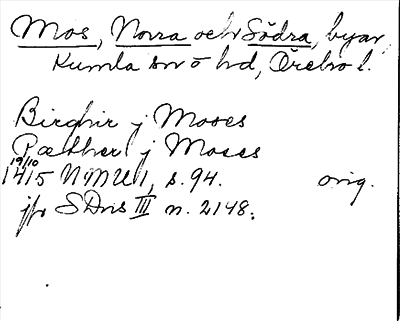 Mos, Norra och Södra, byar,
Kumla sn o hd, Örebro l.
Birghir j Moses
Pæther j Moses
19/10
1415 NMU 1, s. 94. orig.
jfr SDns III n. 2148.